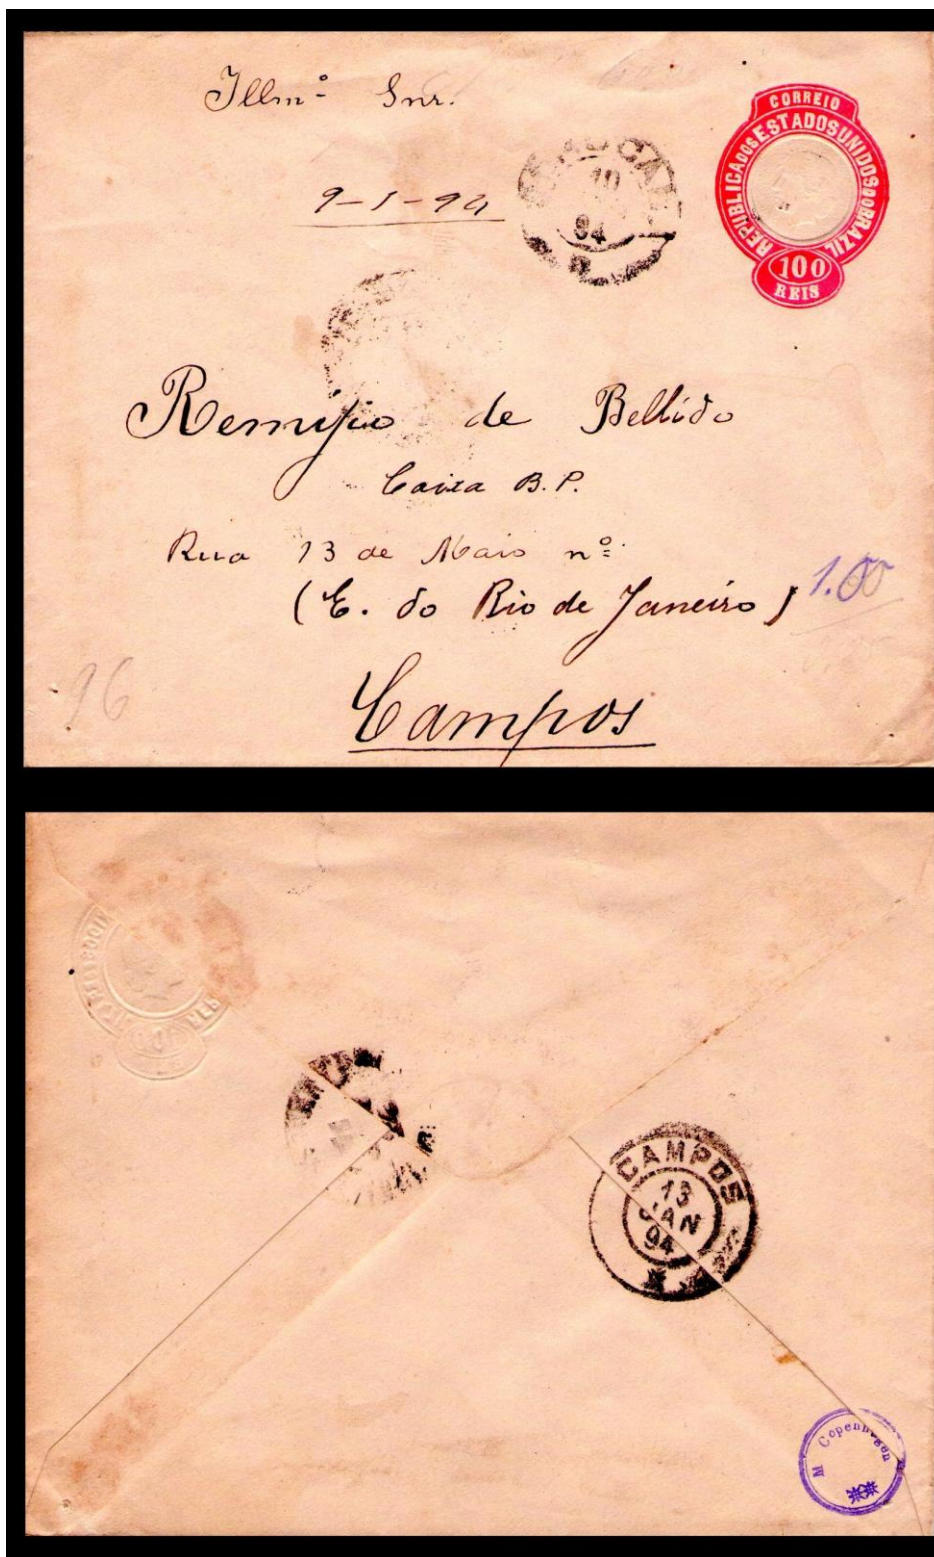 Illmº Snr.
9-1-94
10
94
CORREIO
REPUBLICA DOS ESTADOS UNIDOS DO BRAZIL
100
REIS
Remijio de Bellido
Caixa B. P.
Rua 13 de Maio nº
(E. do Rio de Janeiro)
1.00
Campos
96
CAMPOS
13
JAN
94
M Copenhagen